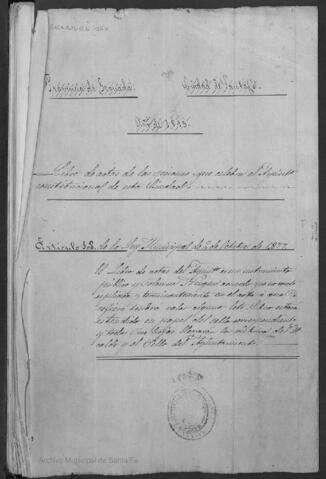 Provincia de Granada. Ciudad de Santafé.
Año de 1883.
Libro de actas de las sesiones que celebra el Ayuntº
constitucional de esta Ciudad.
Artículo 108. de la Ley Municipal de 2 de Octubre de 1877
El Libro de actas del Ayuntº es un instrumento
público y solemne. Ningun acuerdo que no conste
esplicita y terminantemente en el acta a que se
refiera tendrá valor
estendido en papel del sello correspondiente
y todas sus hojas llevarán la rúbrica del
Alcalde y el Sello del Ayuntamiento.
Archivo Municipal de Santa Fe